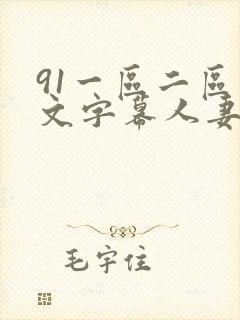 91一區二區
文字幕人妻
毛宇住